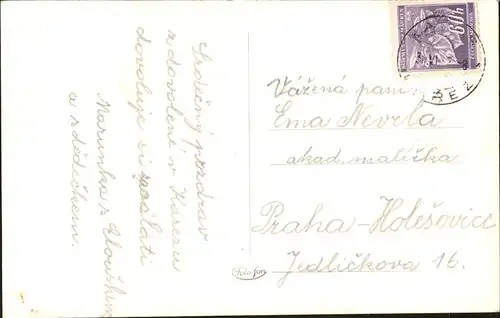 Srdečný pozdrav
z dovolené v Karezu
dovoluje si zaslati
Marunka z
a z dědečkem.
Vážená paní
Ema Nevrla
akad. malířka
Praha-Holešovice
Jedličkova 16.
Foto-fon
60h